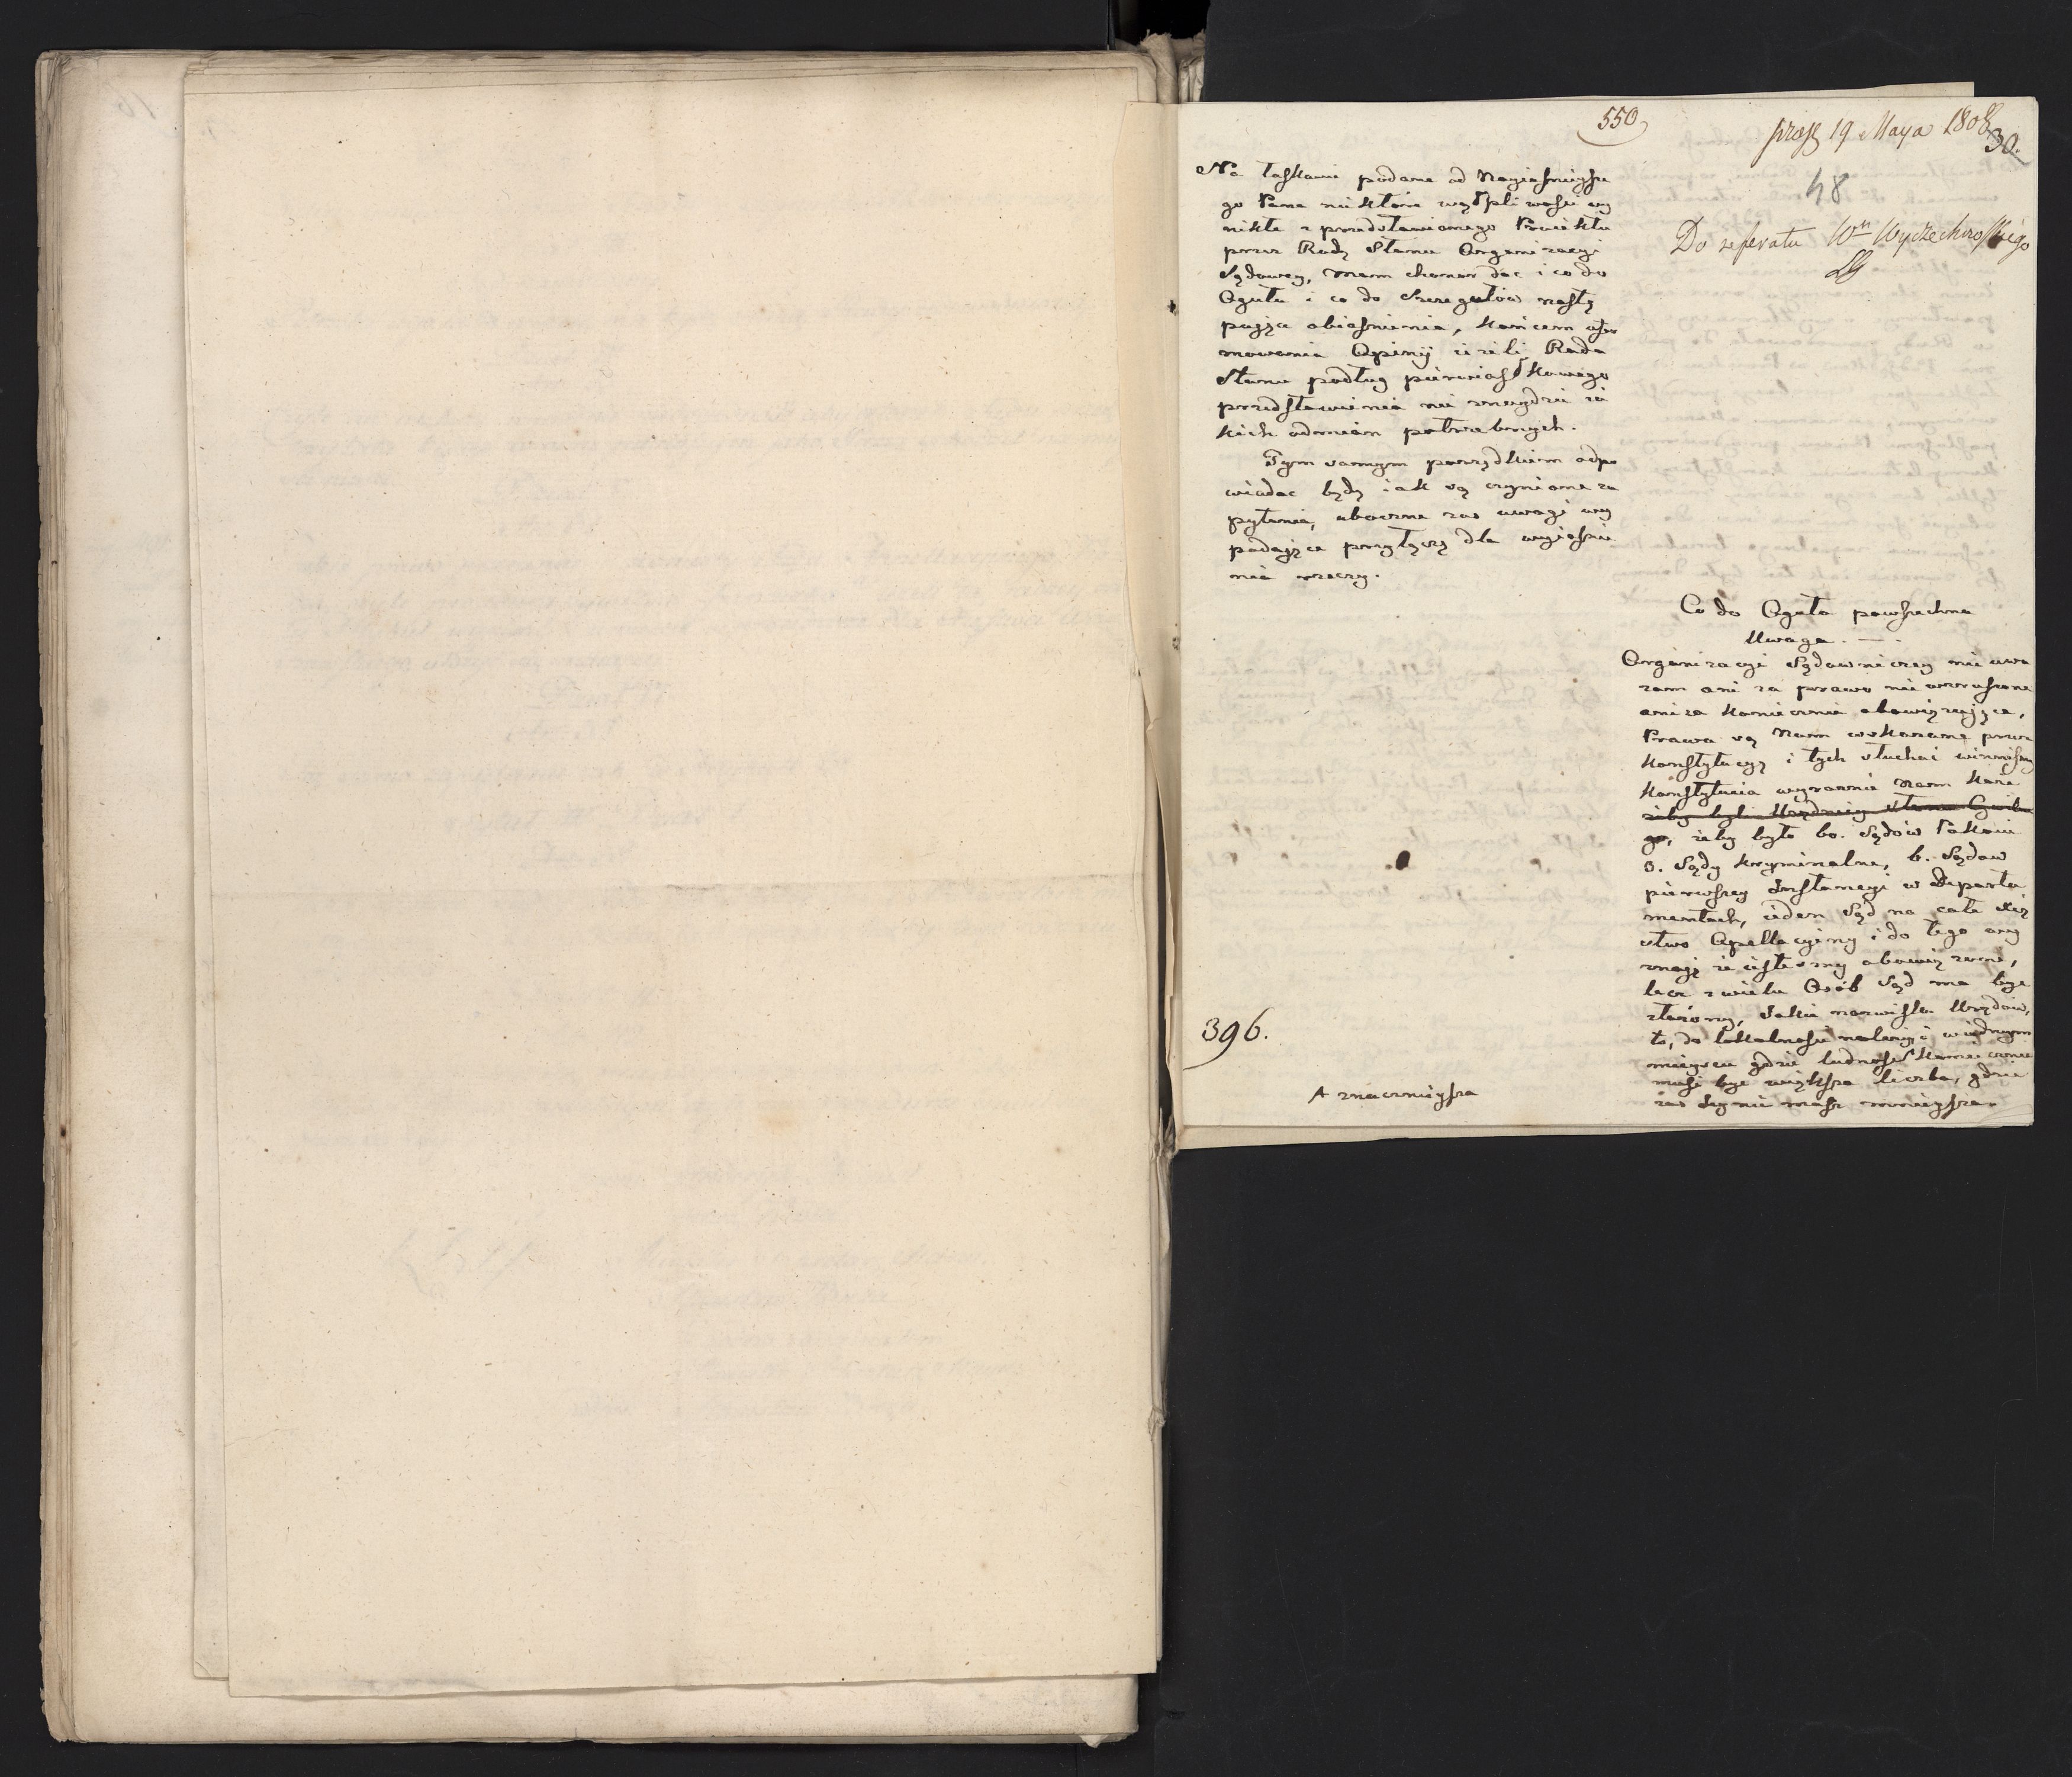 550
praes 19 Maya 1808
30.
48
Do referatu Wn Wyczechowskiego
Na łaskawie podane od Nayiaśnieysze
go Pana niektóre wątpliwości wy
nikłe z przedstawionego Proiektu
przez Radę Stanu Organizacyi
Sądowey, mam honor dać i co do
Ogułu i co do Szczegułów nastę
puiące obiaśnienia, końcem ufor
mowania Opinij ieżeli Rada
Stanu podług pierwiastkowego
przedstawienia nie znaydzie ia
kich odmian potrzebnych.
Tym samym porządkiem odpo
wiadać będę iak są czynione za
pytania, uboczne zaś uwagi wy
padaiące przyłączę dla wyiaśnie
nia rzeczy.
Co do Ogułu powszechna
Uwaga. —
Organizacyi Sądowniczey nie uwa
żam ani za prawo nie wzruszone
ani za koniecznie obowięzuiące,
Prawa są nam wskazane przez
Konstytucyą i tych słuchać winniśmy
Konstytucia wyraźnie nam każe
żeby byli Urzędnicy Stanu Cywilne
go, żeby było 60. Sądów Pokoiu
3. Sądy kryminalne, 6. Sądów
pierwszey Instancyi w Departa
mentach, ieden Sąd na całe Xię
stwo Apellacyiny i do tego wy
znaię że iesteśmy obowiązani,
lecz z wielu Osób Sąd ma być
złożony, Jakie nazwiska Urzędów,
to, do lokalności należy i w iednym
mieyscu gdzie ludność koniecznie
musi być większa liczba, gdzie
zaś iey nie masz mnieysza.
396.
A znacznieysza